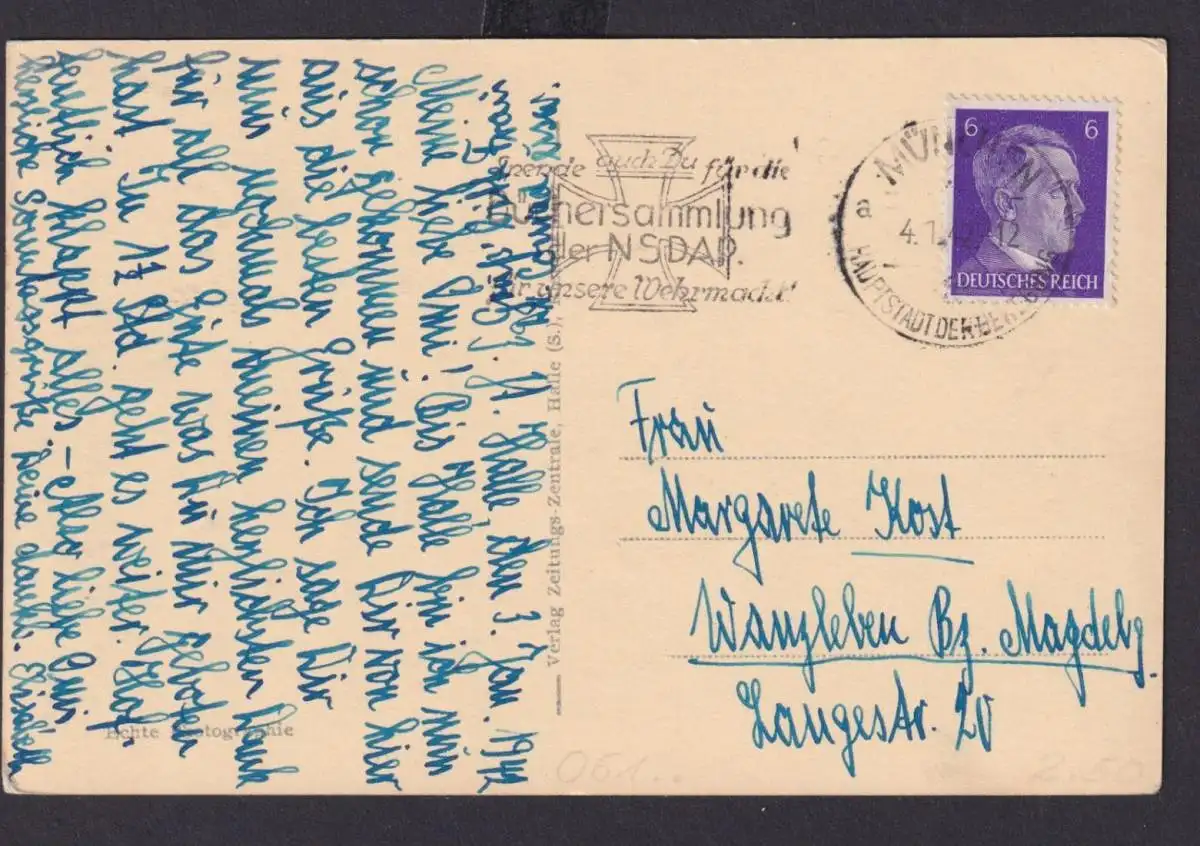 Spende auch Du für die
Büchersammlung
der NSDAP.
für unsere Wehrmacht!
MÜNCHEN
a
4.1.42 12
HAUPTSTADT DER BEWEGUNG
6 6
DEUTSCHES REICH
Frau
Margarete Kost
Wanzleben Bz. Magdebg.
Langestr. 20
Verlag Zeitungs-Zentrale, Halle (S.),
Echte Photographie
Halle den 3. Jan. 1942
Meine liebe Omi! Bis Halle bin ich nun
schon gekommen und sende Dir von hier
aus die besten Grüße. Ich sage Dir
nun nochmals meinen herzlichsten Dank
für all das Gute was Du mir geboten
hast. In 1½ Std. geht es weiter. Hof-
fentlich klappt alles – Also liebe Omi
herzliche Sonntagsgrüße Deine dankb.
061..
2.50